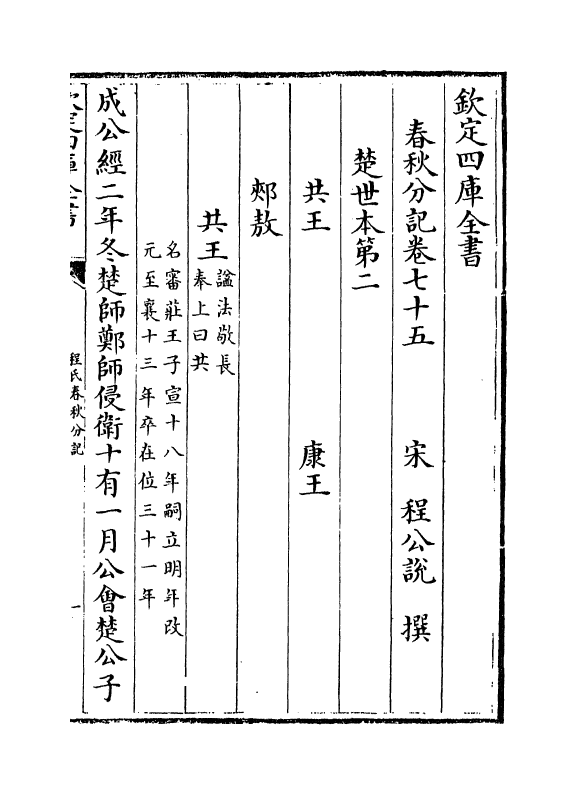 欽定四庫全書
春秋分記卷七十五 宋 程公說 撰
楚世本第二
共王 康王
郟敖
共王 諡法敬長
奉上曰共
名審莊王子宣十八年嗣立明年改
元至襄十三年卒在位三十一年
成公經二年冬楚師鄭師侵衛十有一月公會楚公子
欽定四庫全書
程氏春秋分記
一